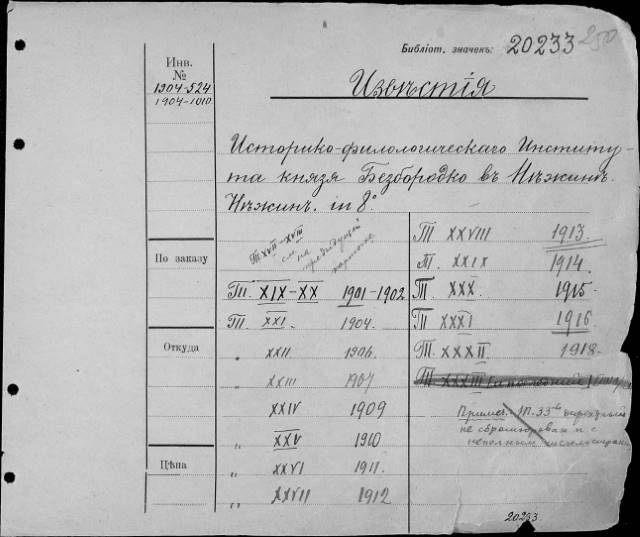 Библіот. значекъ 20233 250
Инв.
№
1904-524
1904-1010
Извѣстія
Историко-филологическаго Институ-
та князя Безбородко въ Нѣжинѣ.
Нѣжинъ. in 8°
По заказу
Откуда
Цѣна
Тт. XVII-XVIII
см. на
предыдущей
карточке
Тт. XIX-XX 1901-1902
Т. XXI. 1904.
" XXII 1906.
" XXIII 1907
XXIV 1909
" XXV 1910
" XXVI 1911.
" XXVII 1912
Т XXVIII 1913.
Т. XXIX 1914.
Т XXX. 1915
Т XXXI 1916
Т. XXXII 1918.
Т XXXIII
Примеч. Т. 33-й
не сброшюрован и с
неполным числом страниц
20233.